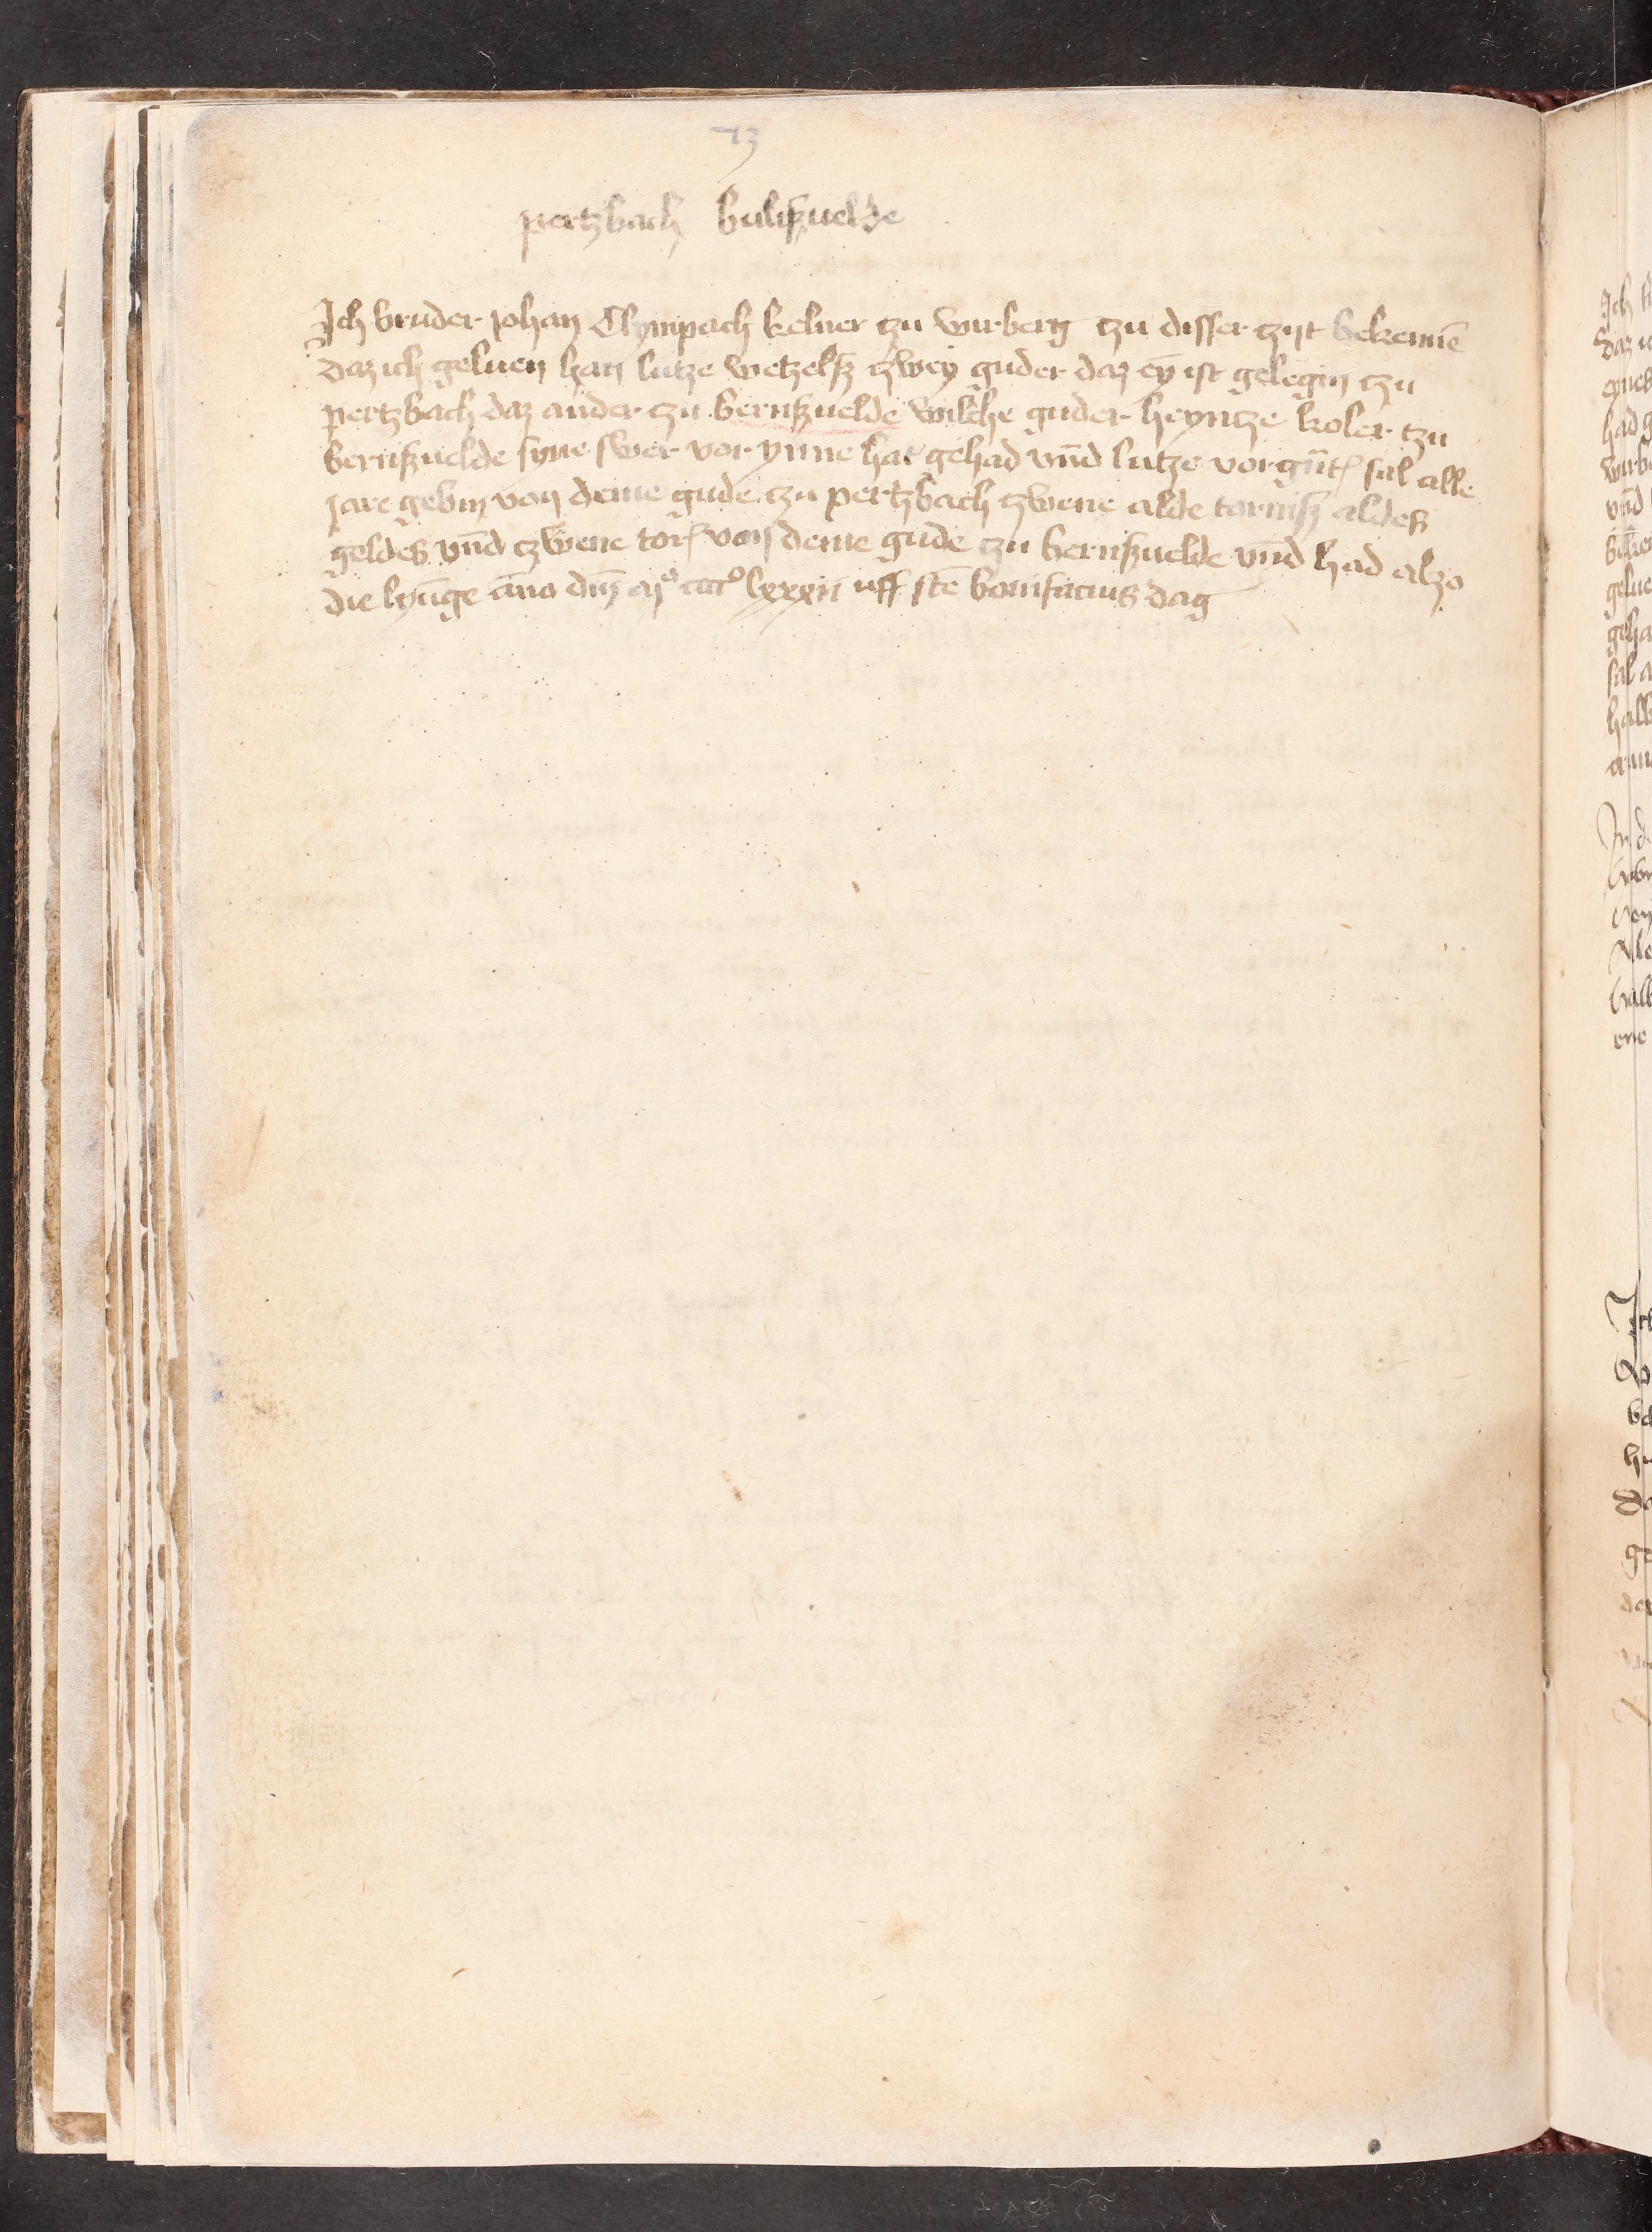 73
pertzbach bulißuelde
Ich bruder johan Clympach kelner tzu wirberg tzu disser tzijt bekennē
daz ich geluen han lutze wetzelß tzwey guder daz ey̅ ist gelegin tzu
pertzbach daz ander tzu bernßuelde wilche guder heyntze koler tzu
bernßuelde syne swer vor ynne hat gehad vn̅d lutze vorgn̅t sal alle
jare gebin von deme gude tzu pertzbach tzwene alde torniß aldes
geldes vn̅d tzwene tor von deme gude tzu bernßuelde vn̅d had alzo
die lyu̅ge an̅o dn̅i mº ccccº lxxxii uff ste̅ bonifacius dag